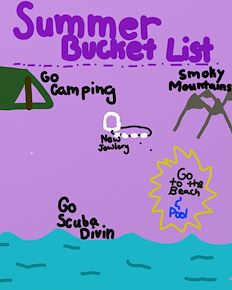 Summer
Bucket List
Go
Camping
Smoky
Mountains
New
Jewlory
Go
to the
Beach
&
Pool
Go
Scuba
Divin